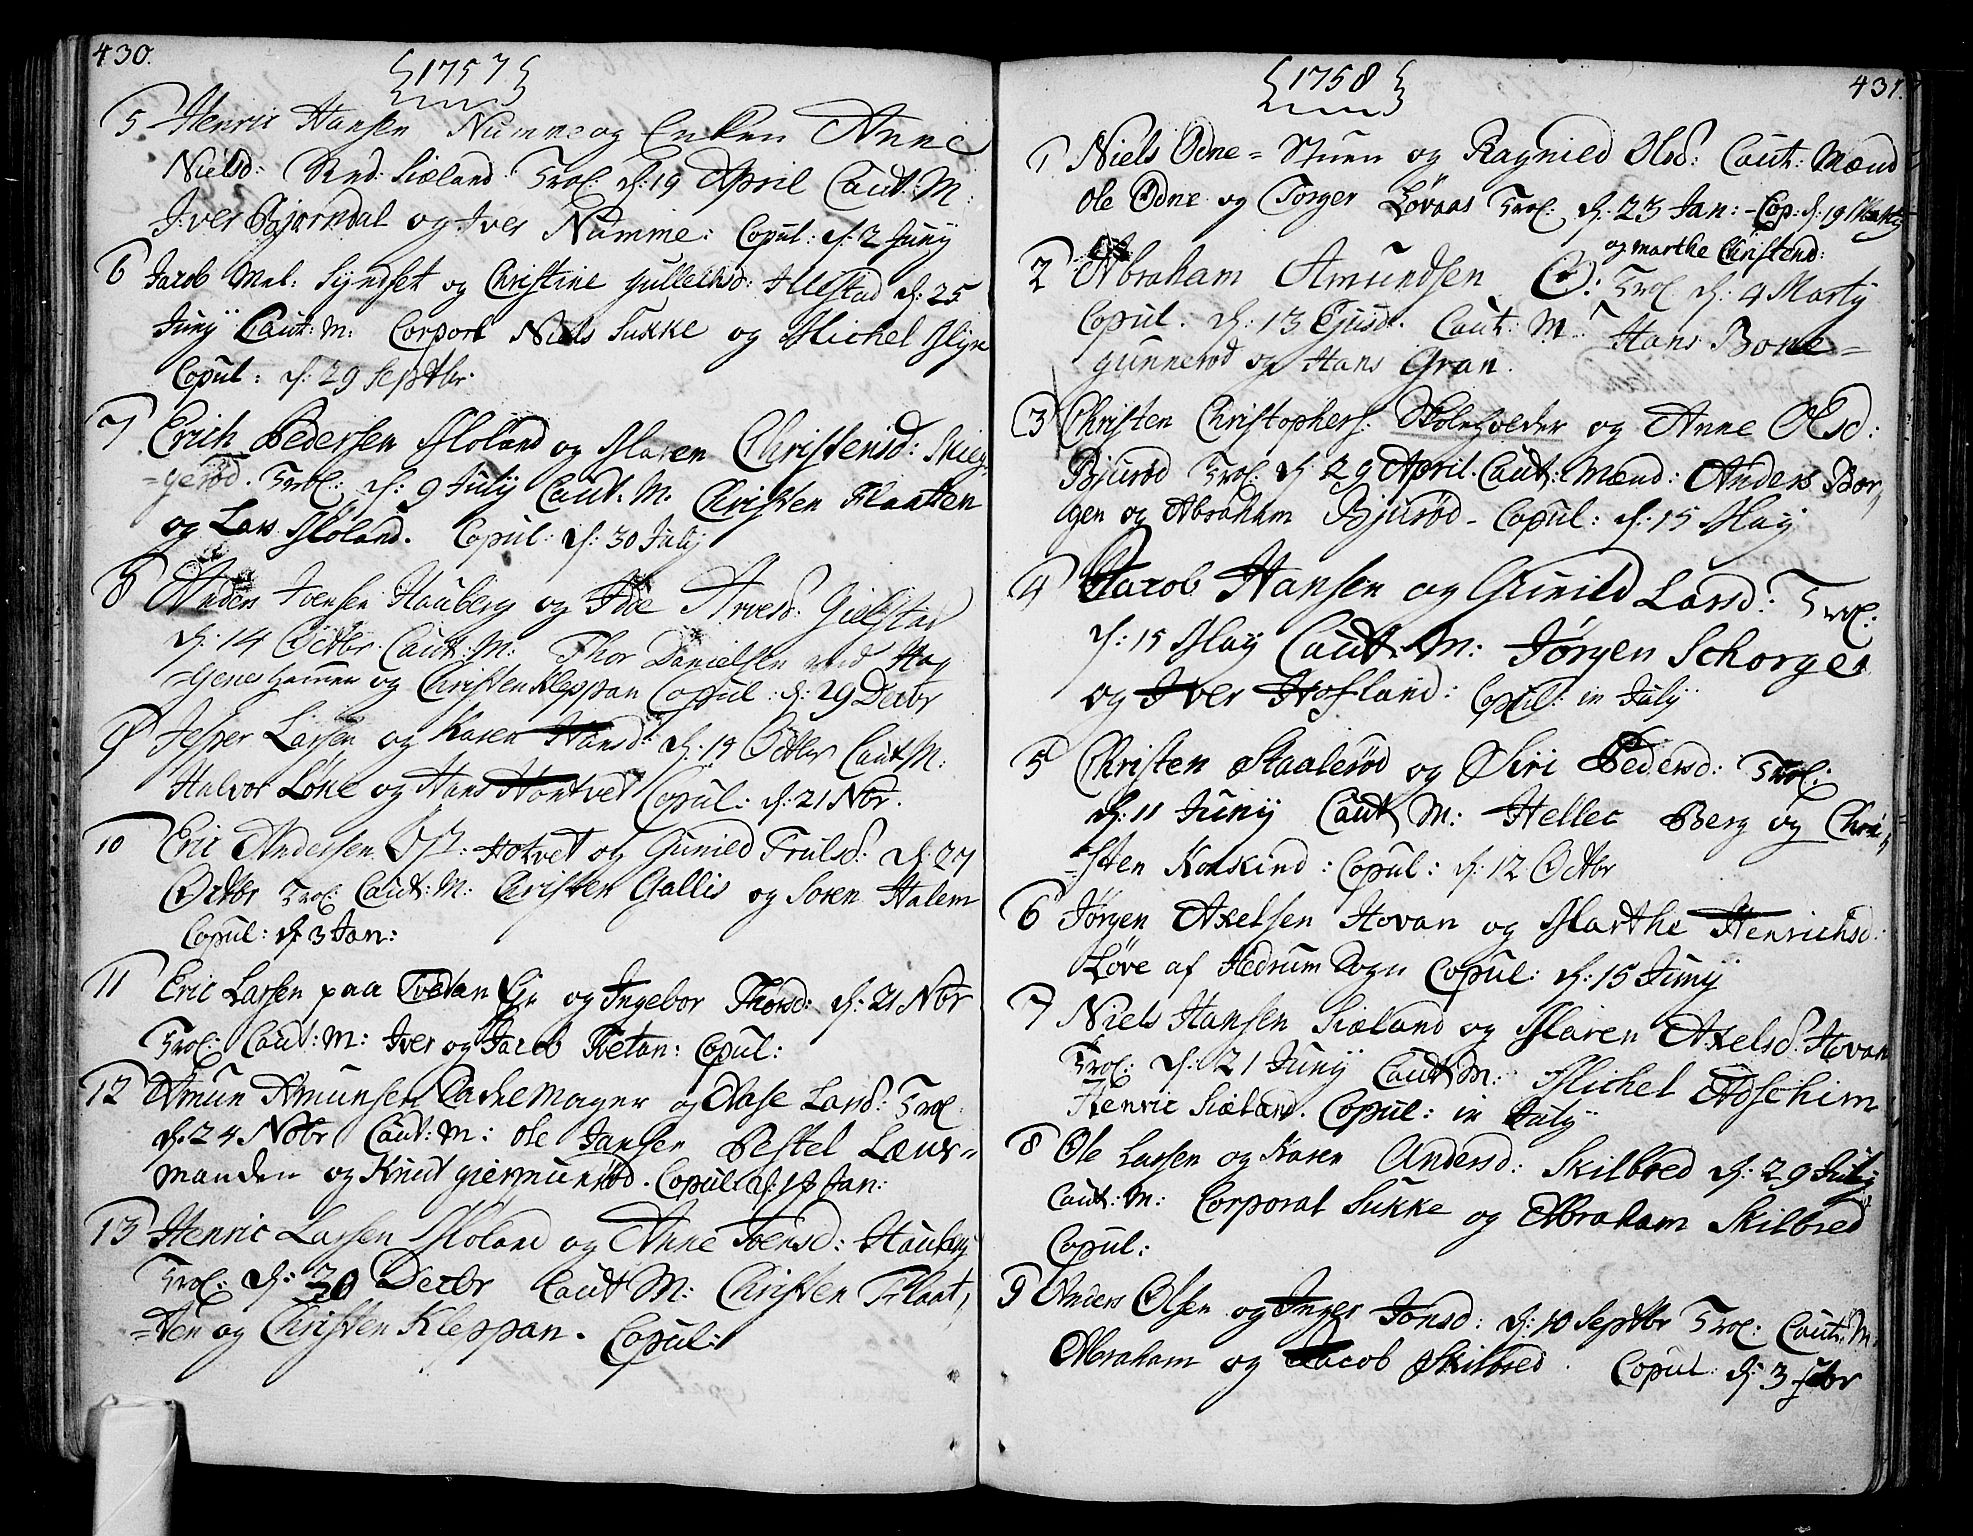 430.
1757
5 Henric Hansen Numme og Enken Anne
Nielsd: Siæland Trol: d: 19 April Caut: M:
Iver Bjørndal og Iver Numme: Copul: d: 2 Juny
6 Jacob Syndset og Christine Gullichsd: Illestad d: 25
Juny Caut: M: Corporl Niels Sukke og Michel
Copul: d: 29 Septbr.
7 Erich Pedersen Moland og Maren Christensd: Skieg=
=gerød. Trol: d: 9 July Caut. M. Christen Flaatten
og Lars Moland. Copul: d: 30 July
8 Anders Svensen Hauberg og Arvesd: Gielstad
d: 14 Octbr. Caut: M: Thor Danielsen ved Hag
og Christen Kleppan Copul: d: 29 Decbr
9 Jesper Larsen og Karen Hansd: d: 19 Octbr Caut M:
Halvor Løne og Hans Hontvet Copul: d: 21 Nbr.
10 Eric Andersen Hotvet og Gunild Trulsd: d: 27
Octbr Trol: Caut: M: Christen Gallis og Soren Halem
Copul: d: 3 Jan:
11 Eric Larsen paa Tvetan Eje og Ingebor Thorsd: d: 21 Nbr
Trol: Caut: M: Iver og Jacob Tvetan: Copul:
12 Amun Amunsen Takkemager og Aase Larsd: Trol:
d. 24 Nobr Caut: M: Ole Jansen Pestel Læns=
manden og Knut giermunrød. Copul d: Jan:
13 Henric Larsen Moland og Anne Svensd: Hauberg
Trol: d: 30 Decbr Caut M: Christen Flaat,
=ten og Christen Kleppan. Copul:
431.
1758
1 Niels Odne=Stuen og Ragnild Olsd: Caut: Mænd
Ole Odne og Torger Løvaas Trol: d: 23 Jan: - Cop: d: 19 Marty
og marthe Christend:
2 Abraham Amundsen Trol d: 4 Marty
Copul. d: 13 Ejusd. Caut: M: Hans Bone=
gunnerød og Hans Gran.
3 Christen Christophers: Skoleholder og Anne Olsd:
Bjurød Trol: d: 29 April. Caut: Mænd: Anders Bor,
gen og Abraham Bjurød - Copul: d: 15 May
4 Jacob Hansen og Gunild Larsd: Trol:
d: 15 May Caut: M: Jørgen Schorge
og Iver Hofland: Copul: in July
5 Christen Staalerød og Siri Pedersd: Trol:
d: 11 Juny Caut M: Hellec Berg og Chri,
=sten Korskind: Copul: d: 12 Octbr
6 Jørgen Axelsen Hovan og Marthe Henrichsd:
Løve af Hedrum Sogn Copul: d: 15 Juny
7 Niels Hansen Siæland og Maren Axelsd: Hovan
Trol: d: 21 Juny Caut M: Michel Adschim
Henric Siæland. Copul: in July
8 Ole Larsen og Karen Andersd: Skilbred d: 29 July
Caut: M: Corporal Sukke og Abraham Skilbred
Copul:
9 Anders Olsen og Inger Jonsd: d: 10 Septbr Trol: Caut: M:
Abraham og Jacob Skilbred. Copul: d: 3 febr